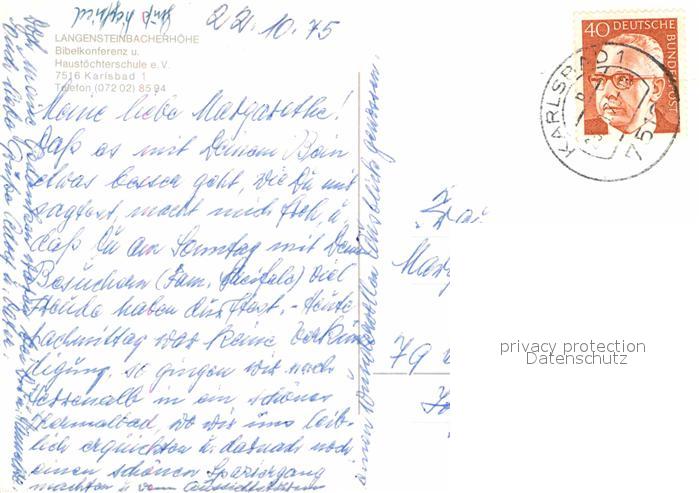 22.10.75
LANGENSTEINBACHERHÖHE
Bibelkonferenz u.
Haustöchterschule e.V.
7516 Karlsbad 1
Telefon (072 02) 85 94
Meine liebe Margarethe!
Daß es mit Deinem Bein
etwas besser geht, wie Du mir
sagtest, macht mich froh, u.
daß Du am Sonntag mit Deinen
Besuchern (Fam. ) viel
Freude haben durftest. - Heute
nachmittag war keine Verkün
digung, so gingen wir nach
Herrenalb in ein schönes
Thermalbad, wo wir uns leib-
lich erquickten u. darnach noch
einen schönen Spaziergang
machten u. vom Aussichtsturm
einen wundervollen Ausblick genossen.
40 DEUTSCHE BUNDESPOST
KARLSBAD 1
7516
Frau
Marg
79
privacy protection
Datenschutz